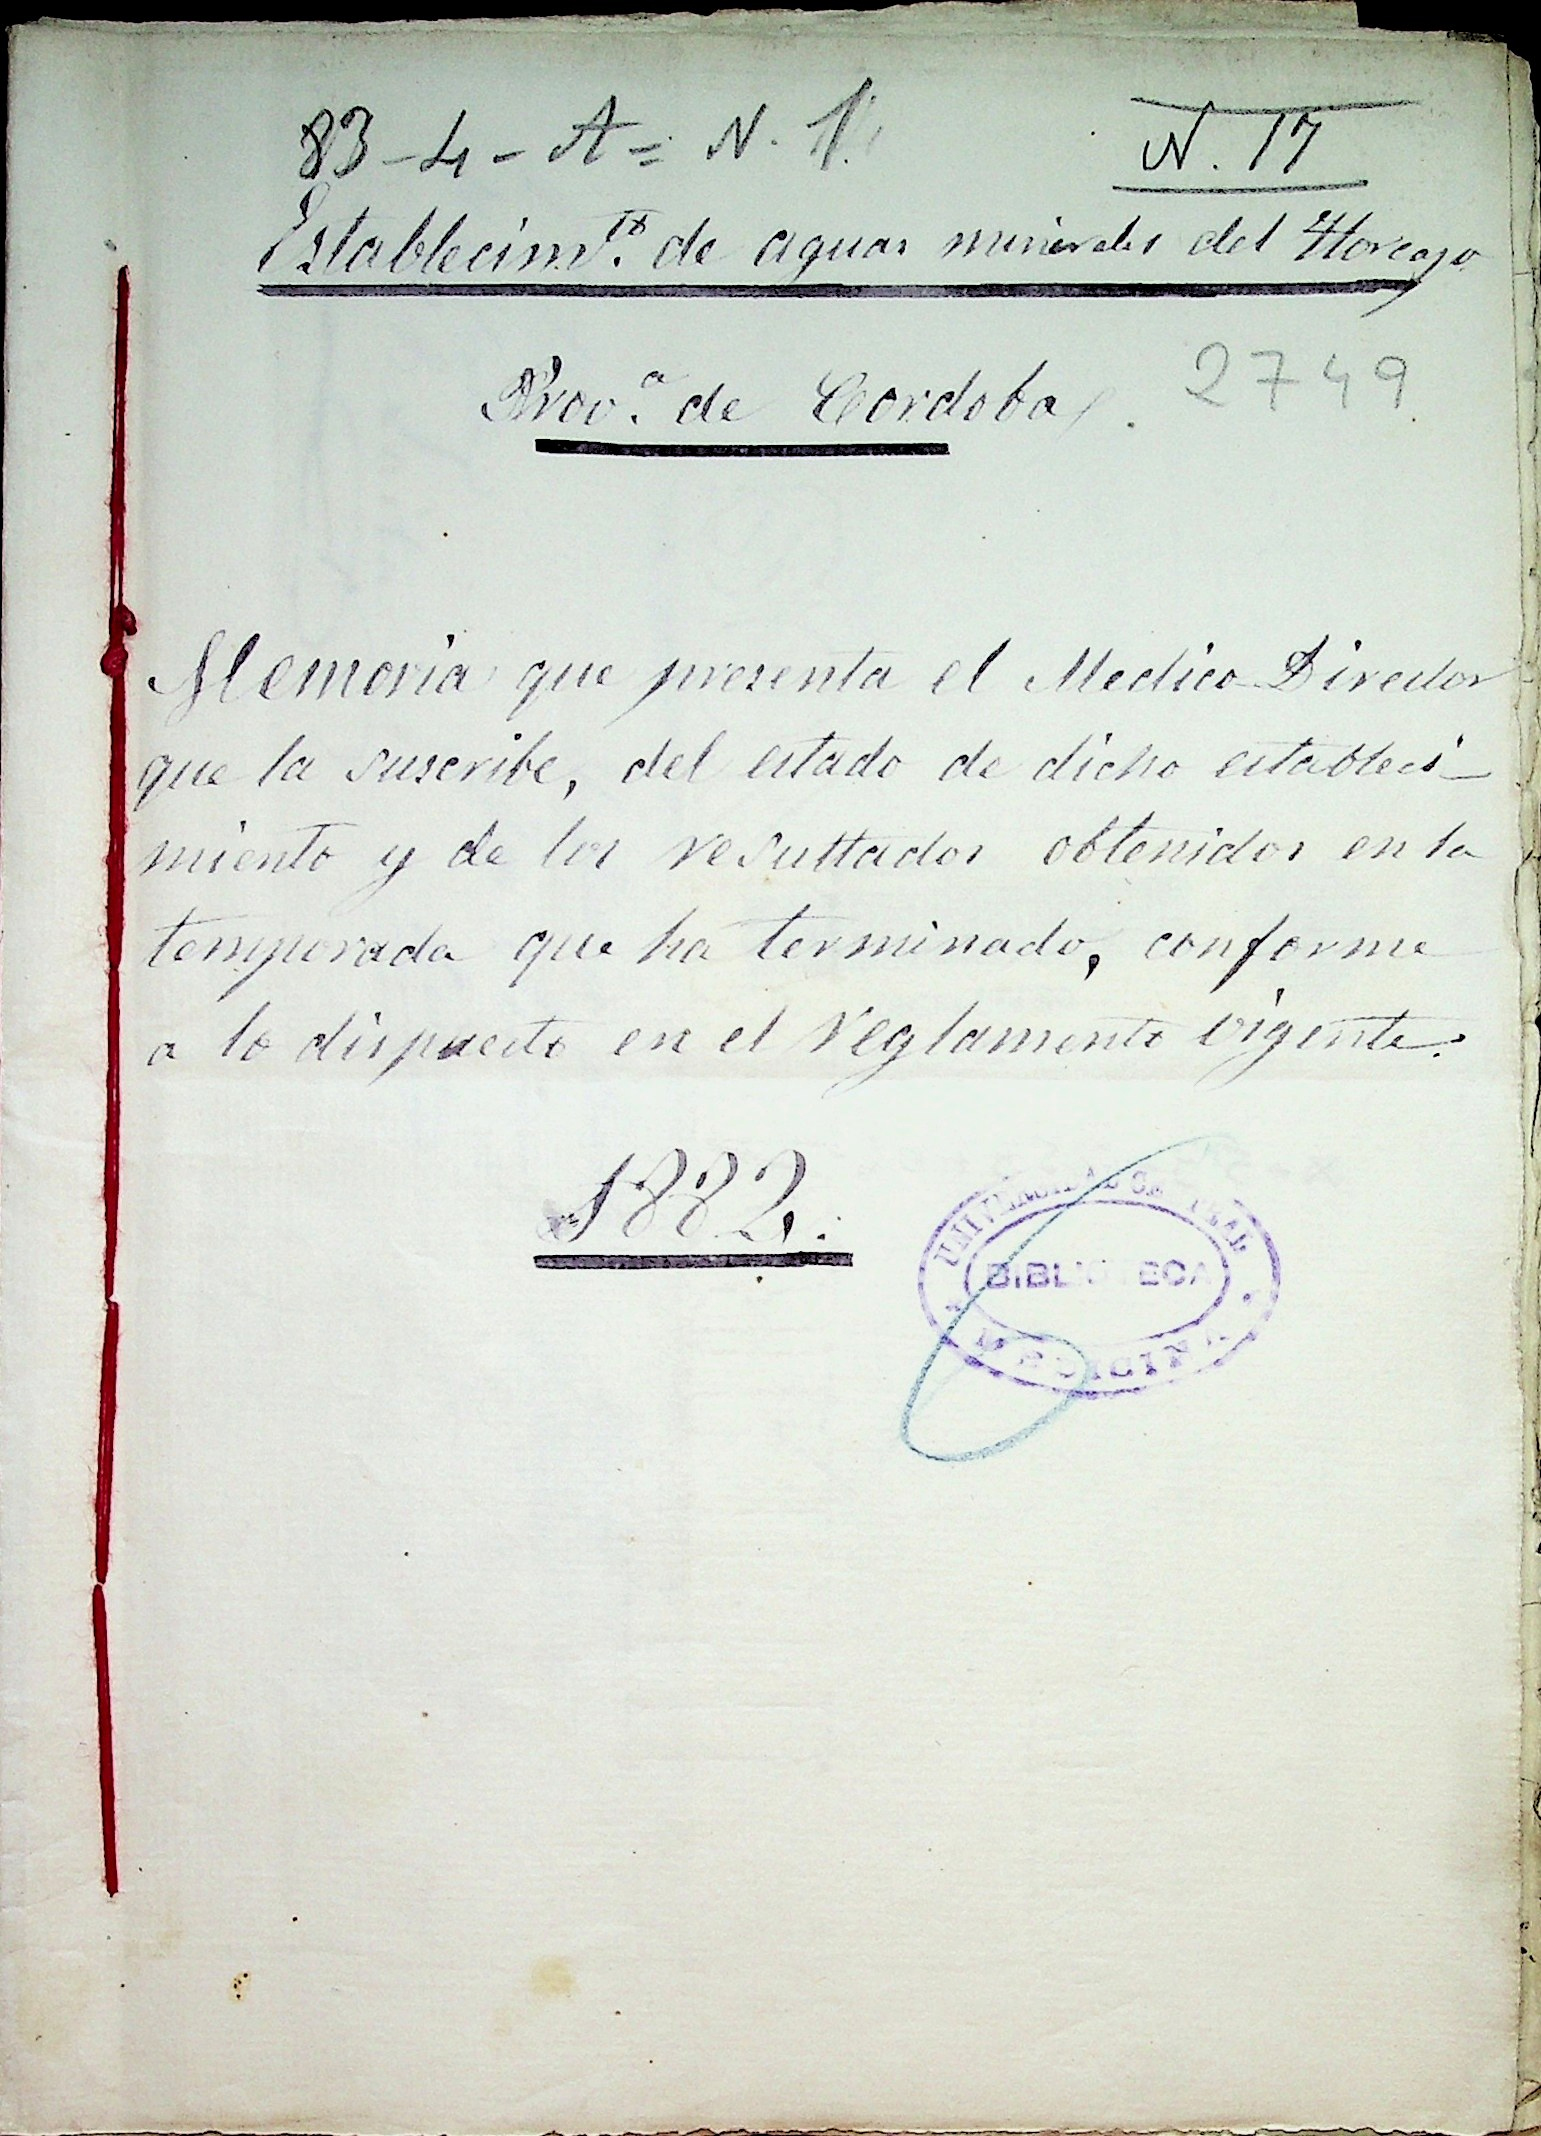 83-4-A= N. 1.
N. 17
Establecim.to de aguas minerales del Horcajo
Prov.a de Cordoba.
2749
Memoria que presenta el Medico Director
que la suscribe, del estado de dicho estableci-
miento y de los resultados obtenidos en la
temporada que ha terminado, conforme
a lo dispuesto en el reglamento vigente.
1882.
UNIVERSIDAD CENTRAL
BIBLIOTECA
MEDICINA